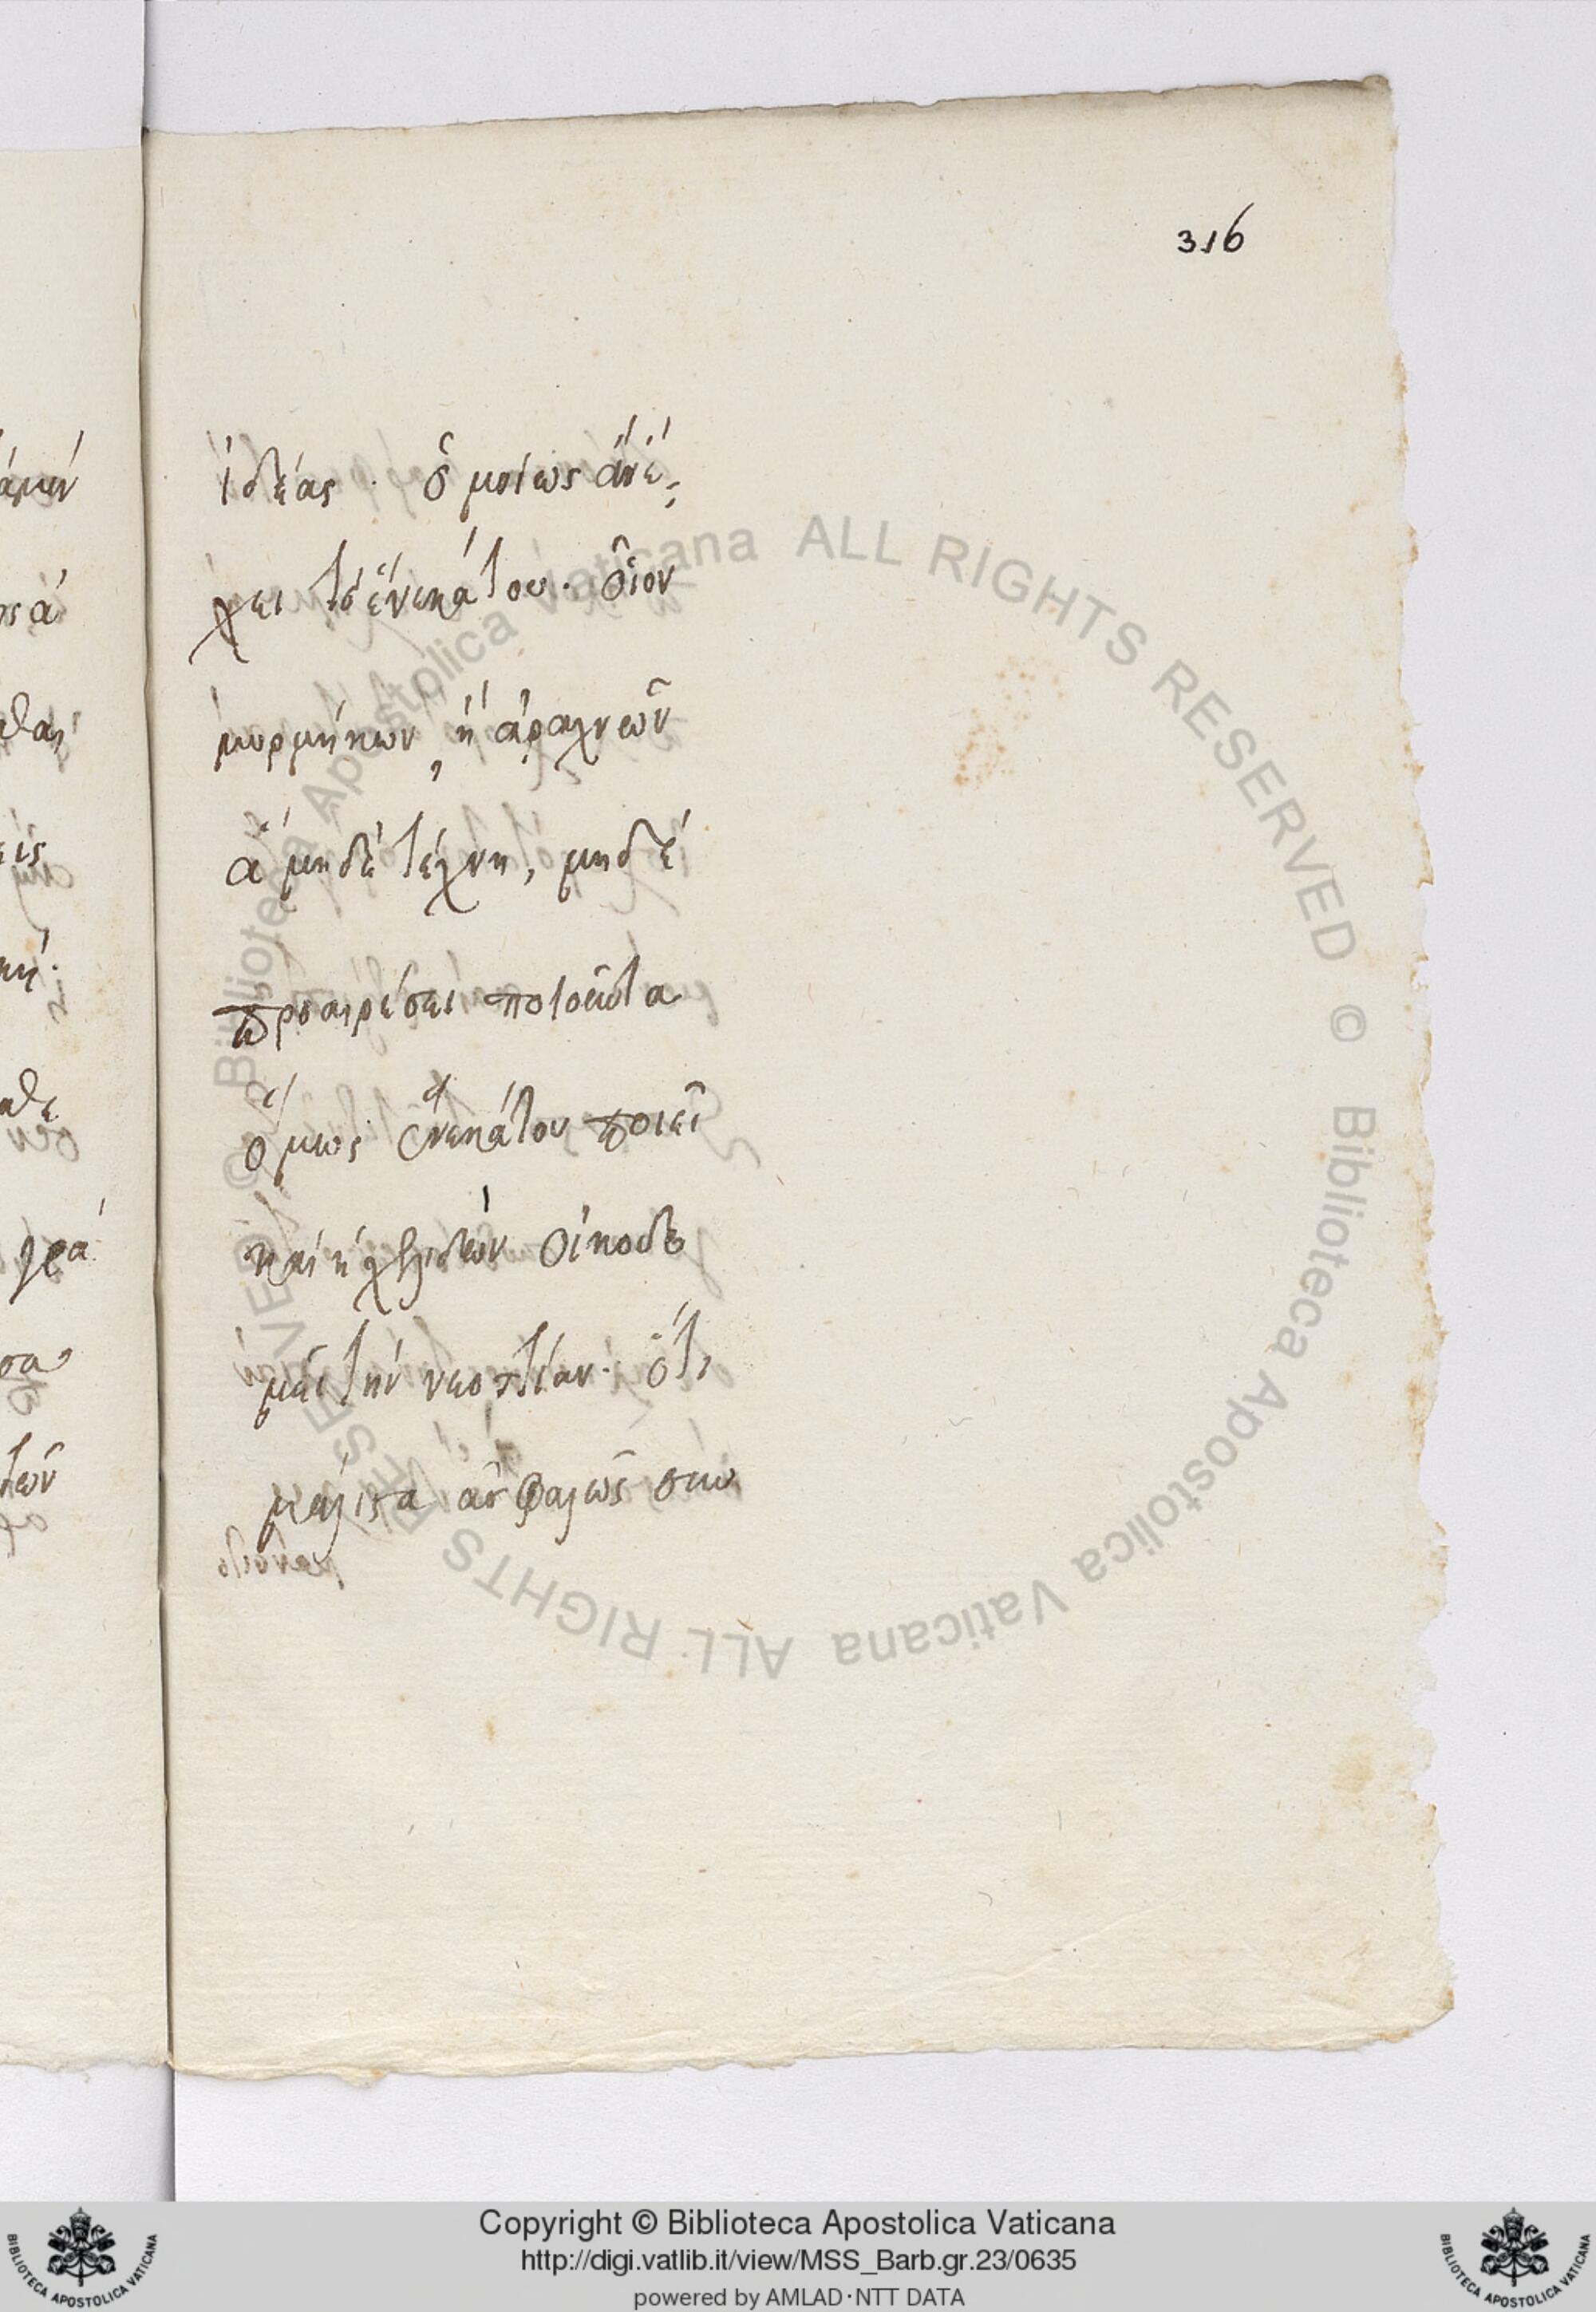 316
ἰδέας · ὁμοίως ἀπέ:
χει τὸ ἕνεκάτου· οἷον
μυρμήκων, ἢ ἀραχνῶν
ἃ μηδὲ τέχνη, μηδὲ
προαιρέσει ποιοῦντα
ὅμως ἕνεκάτου ποιεῖ
καὶ ἡ χελιδὼν οἰκοδο
μεῖ τὴν νεοττίαν· ὅτι
μάλιστα ἀσφαλῶς
© Biblioteca Apostolica Vaticana ALL RIGHTS RESERVED © Biblioteca Apostolica Vaticana ALL RIGHTS RESERVED
Copyright © Biblioteca Apostolica Vaticana
http://digi.vatlib.it/view/MSS_Barb.gr.23/0635
powered by AMLAD·NTT DATA
BIBLIOTECA APOSTOLICA VATICANA
BIBLIOTECA APOSTOLICA VATICANA